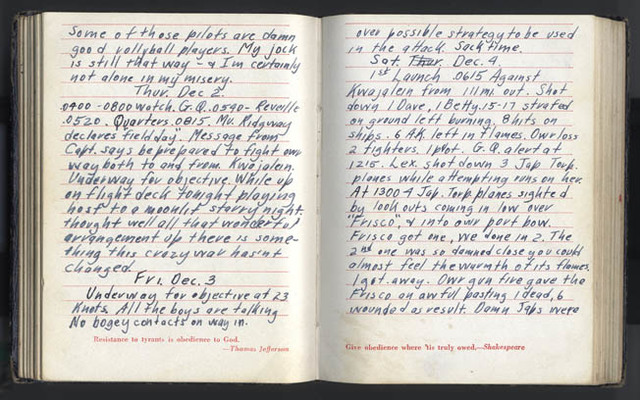 Some of those pilots are damn
good vollyball players. My jock
is still that way - & I'm certainly
not alone in my misery.
Thur. Dec 2.
0400-0800 watch. G.Q. 0540- Reveille
0520. Quarters. 0815. Mr. Ridgway
declares "field day". Message from
Capt. says be prepared to fight our
way both to and from Kwajalein.
Underway for objective. While up
on flight deck tonight playing
host to a moonlit starry night.
thought well all that wonderful
arrangement up there is some-
thing this crazy war hasn't
changed.
Fri. Dec. 3
Underway for objective at 23
Knots. All the boys are talking
No bogey contacts on way in.
Resistance to tyrants is obedience to God.
—Thomas Jefferson
over possible strategy to be used
in the attack. Sack time.
Sat. Thur. Dec. 4.
1st Launch 0615 Against
Kwajalein from 111 mi out. Shot
down 1 Dave, 1 Betty. 15-17 strafed
on ground left burning. 8 hits on
ships. 6 AK left in flames. Our loss
2 fighters. 1 pilot. G.Q. alert at
1215. Lex. shot down 3 Jap Torp.
planes while attempting runs on her.
At 1300 4 Jap. Torp. planes sighted
by look outs coming in low over
"Frisco", & into our port bow.
Frisco got one, we done in 2. The
2nd one was so damned close you could
almost feel the warmth of its flames.
1 got away. Our gun fire gave the
Frisco an awful pasting 1 dead, 6
wounded as result. Damn Japs were
Give obedience where 'tis truly owed.—Shakespeare